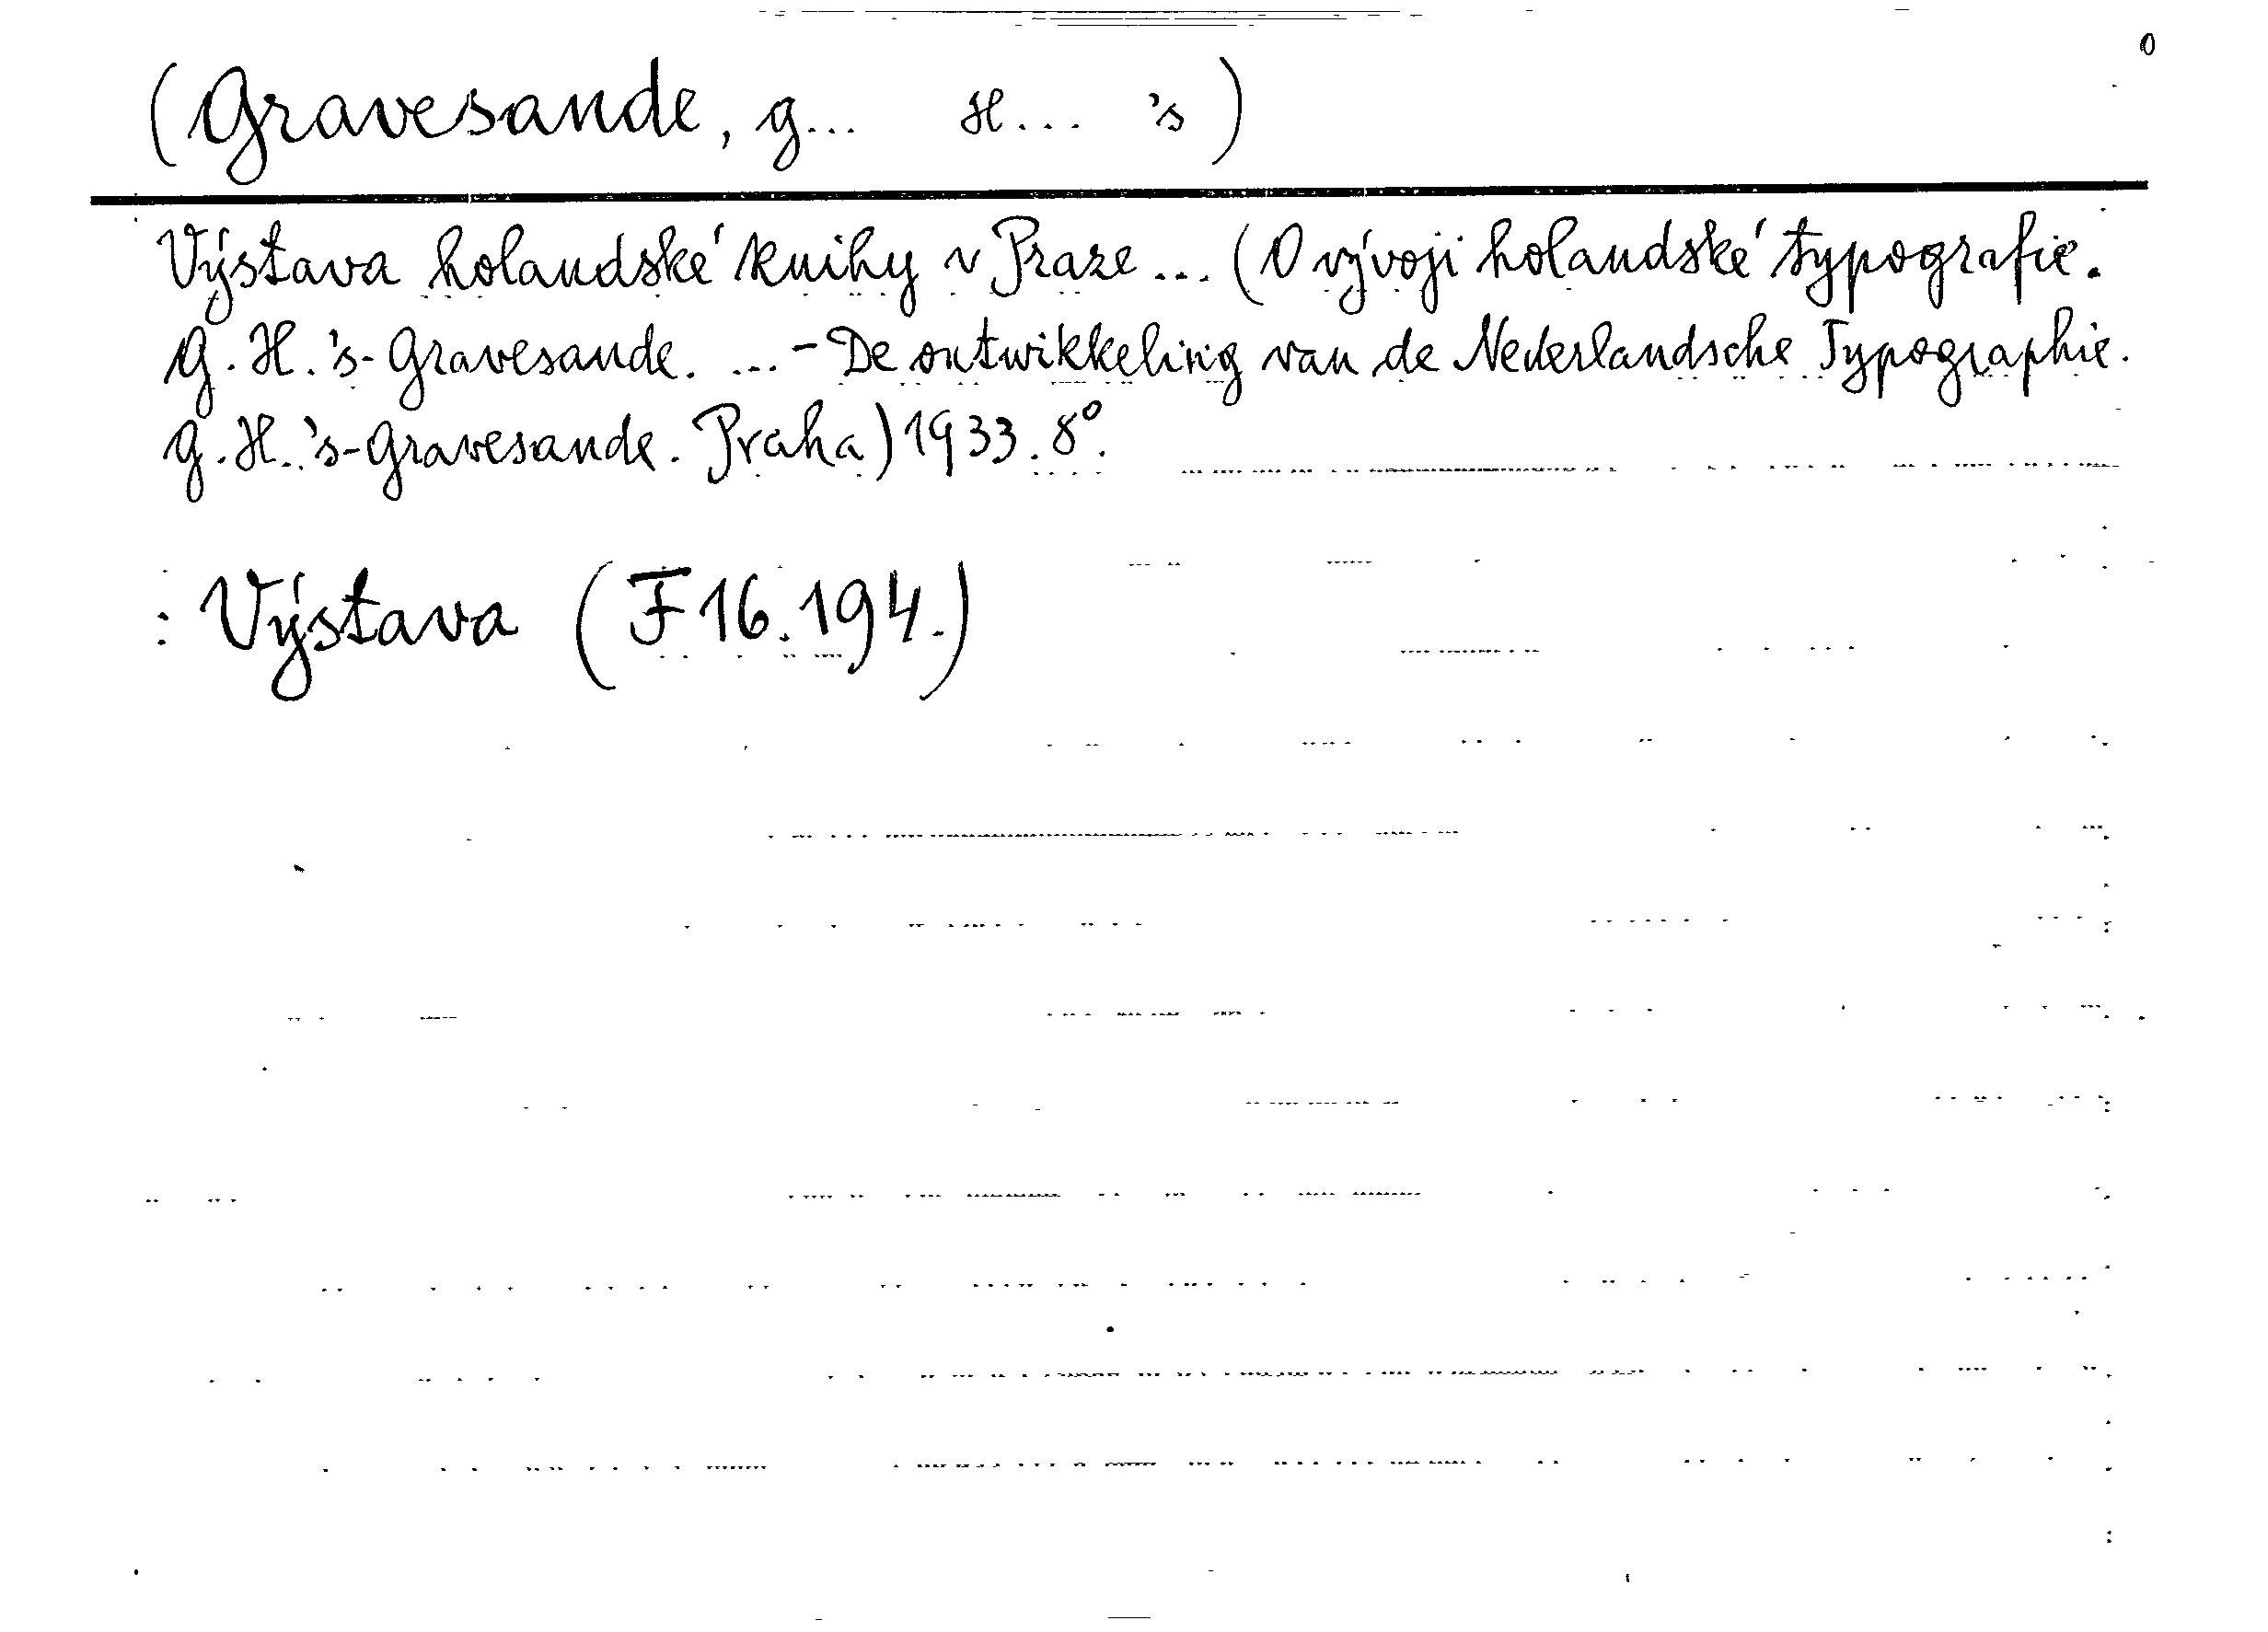 0
(Gravesande, G... H... 's)
Výstava holandské knihy v Praze ... (O vývoji holandské typografie.
G. H. 's-Gravesande. ... - De ontwikkeling van de Nederlandsche Typographie.
G. H. 's-Gravesande. Praha) 1933. 8°.
: Výstava (F 16.194.)